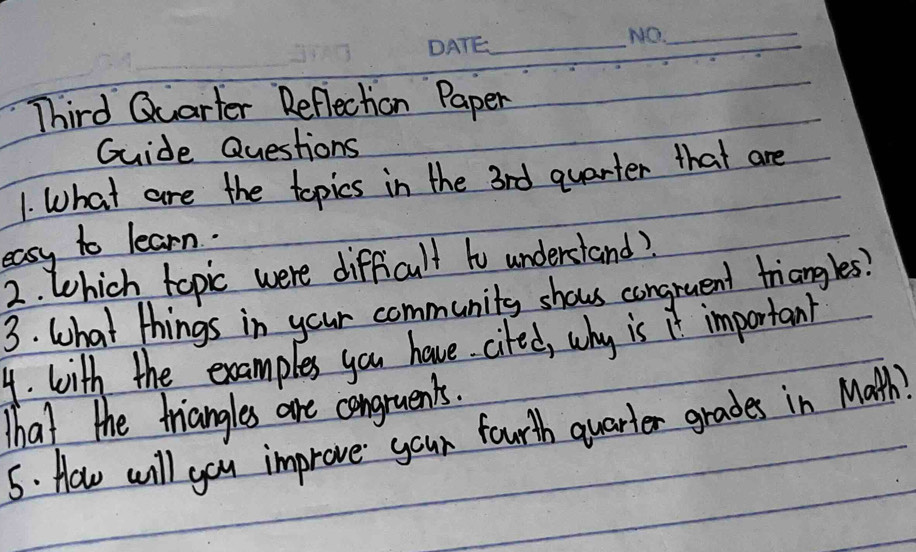 DATE: NO.
Third Quarter Reflection Paper
Guide Questions
1. What are the topics in the 3rd quarter that are
easy to learn.
2. Which topic were difficult to understand?
3. What things in your community shows congruent triangles?
4. With the examples you have cited, why is it important
that the triangles are congruents.
5. How will you improve your fourth quarter grades in Math?